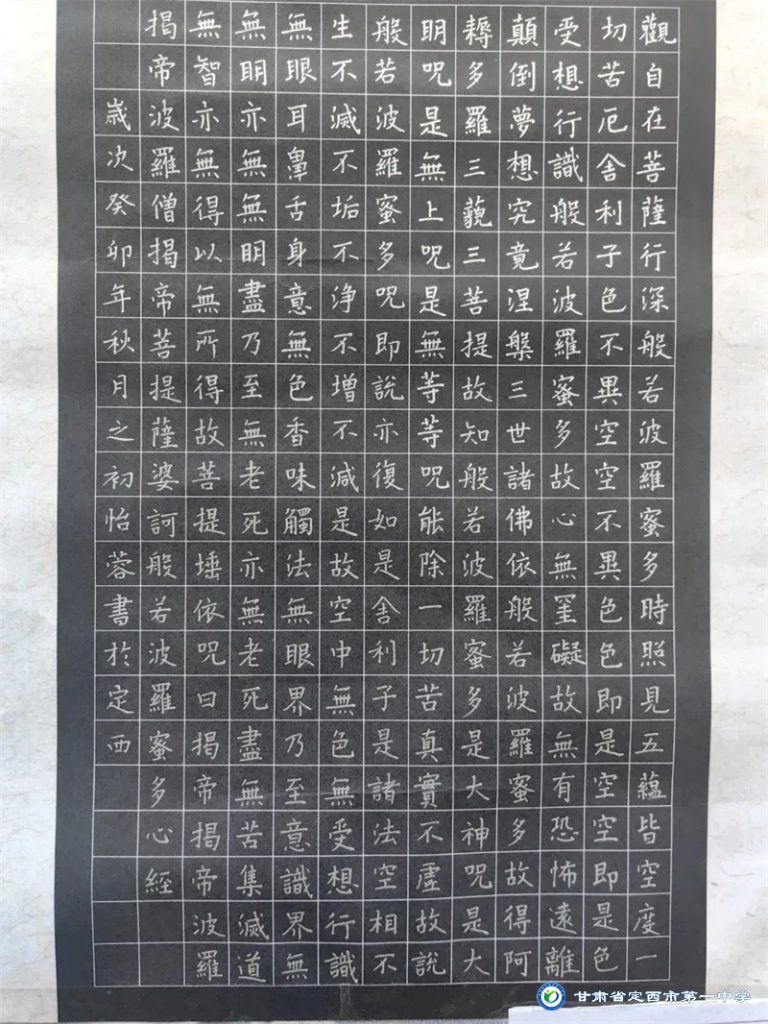 觀自在菩薩行深般若波羅蜜多時照見五蘊皆空度一
切苦厄舍利子色不異空空不異色色即是空空即是色
受想行識般若波羅蜜多故心無罣礙故無有恐怖遠離
顛倒夢想究竟涅槃三世諸佛依般若波羅蜜多故得阿
耨多羅三藐三菩提故知般若波羅蜜多是大神呪是大
明呪是無上呪是無等等呪能除一切苦真實不虛故說
般若波羅蜜多呪即說亦復如是舍利子是諸法空相不
生不滅不垢不淨不增不減是故空中無色無受想行識
無眼耳鼻舌身意無色香味觸法無眼界乃至意識界無
無明亦無無明盡乃至無老死亦無老死盡無苦集滅道
無智亦無得以無所得故菩提埵依呪曰揭帝揭帝波羅
揭帝波羅僧揭帝菩提薩婆訶般若波羅蜜多心經
歲次癸卯年秋月之初怡蓉書於定西
甘肃省定西市第一中学